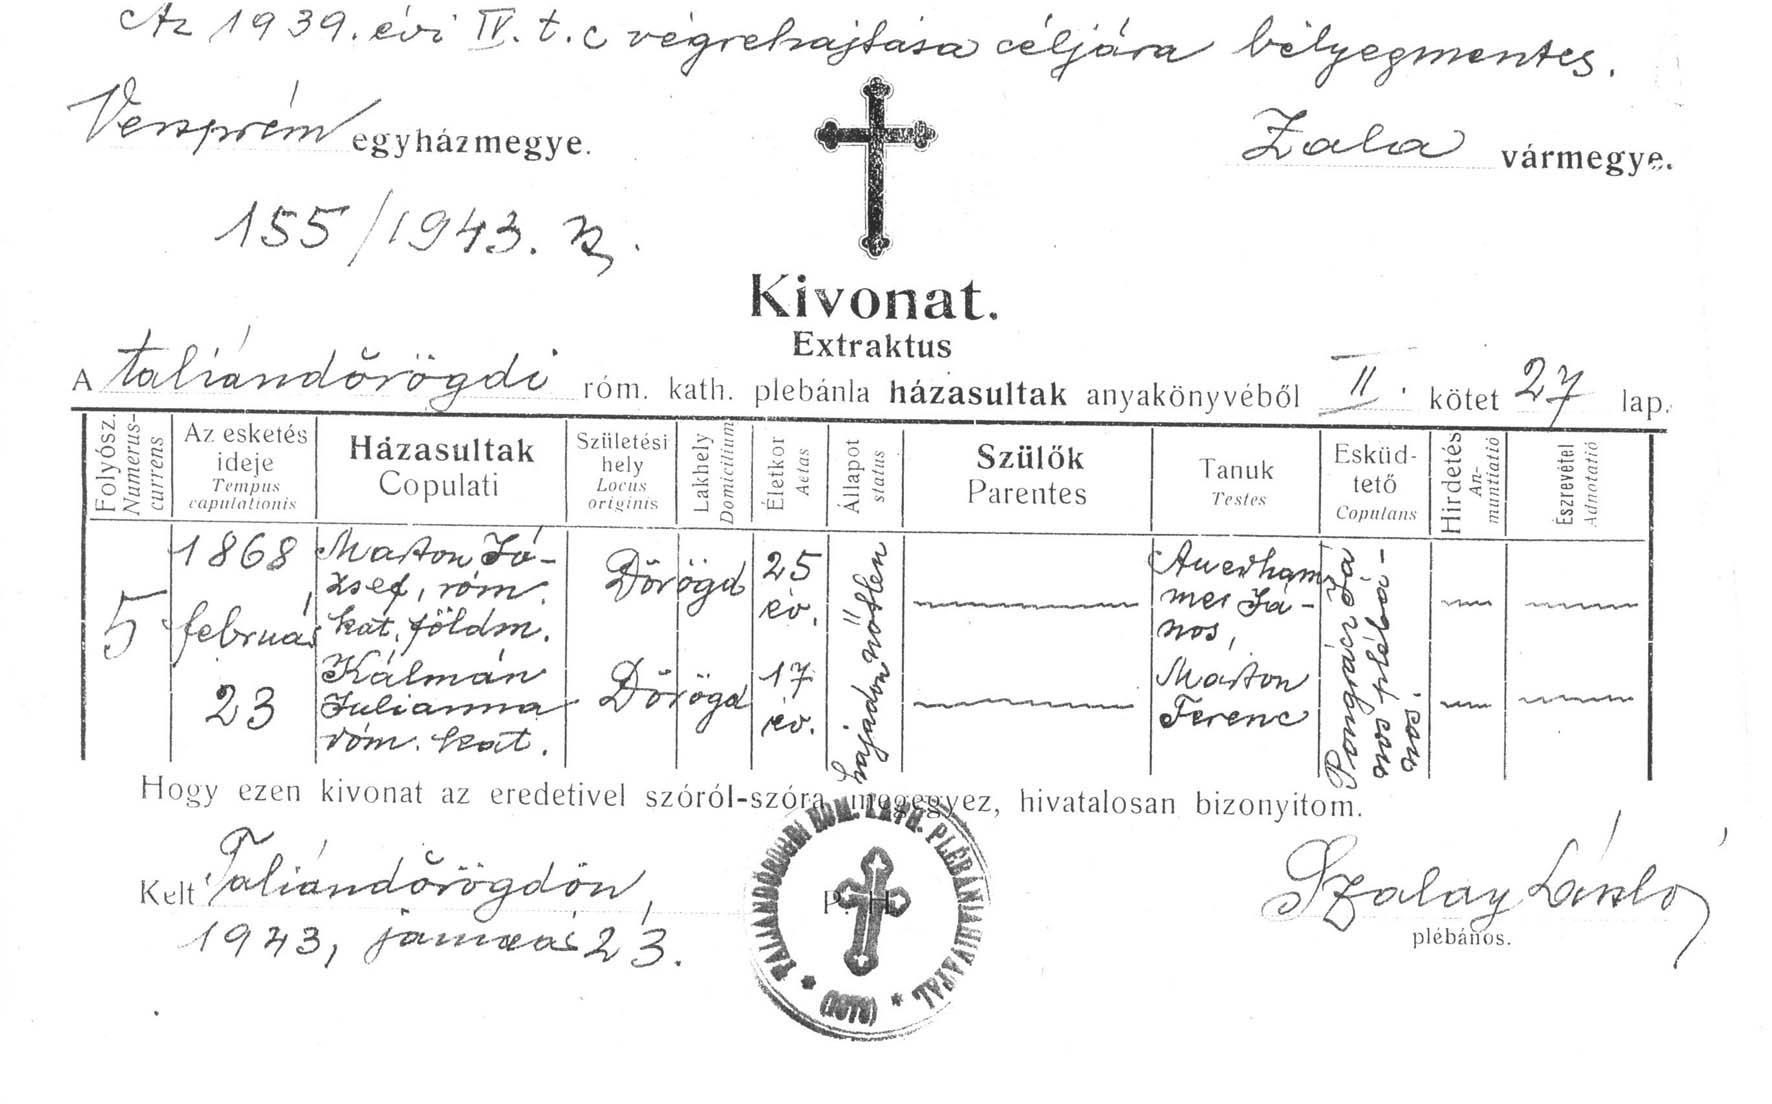 Az 1939. évi IV. t. c végrehajtása céljára bélyegmentes.
Veszprém egyházmegye.
Zala vármegye.
155/1943.
Kivonat.
Extraktus
A taliándörögdi róm. kath. plebánla házasultak anyakönyvéből II. kötet 27 lap.
Folyósz. Numerus-currens
Az esketés ideje Tempus capulationis
Házasultak Copulati
Születési hely Locus originis
Lakhely Domicilium
Életkor Aetas
Állapot status
Szülők Parentes
Tanuk Testes
Esküdtető Copulans
Hirdetés An-nuntiatió
Észrevétel Adnotatió
5
1868
február
23
Marton Jó-
zsef, róm.
kat. földm.
Dörögd
25
év.
nőtlen
Auerham
mer Já-
nos,
Kálmán
Julianna
róm. kat.
Dörögd
17
év.
hajadon
Marton
Ferenc
Hogy ezen kivonat az eredetivel szóról-szóra megegyez, hivatalosan bizonyitom.
Kelt Taliándörögdön,
1943, január 23.
P. H.
TALIÁNDÖRÖGDI RÓM. KATH. PLÉBÁNIAHIVATAL
Szalay László
plébános.